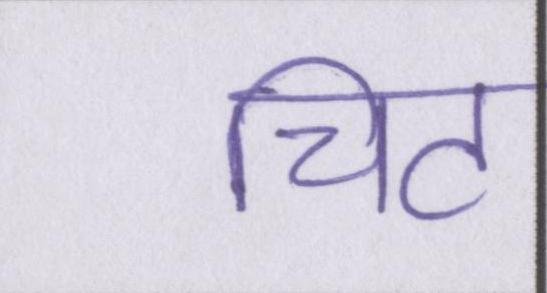 चिट